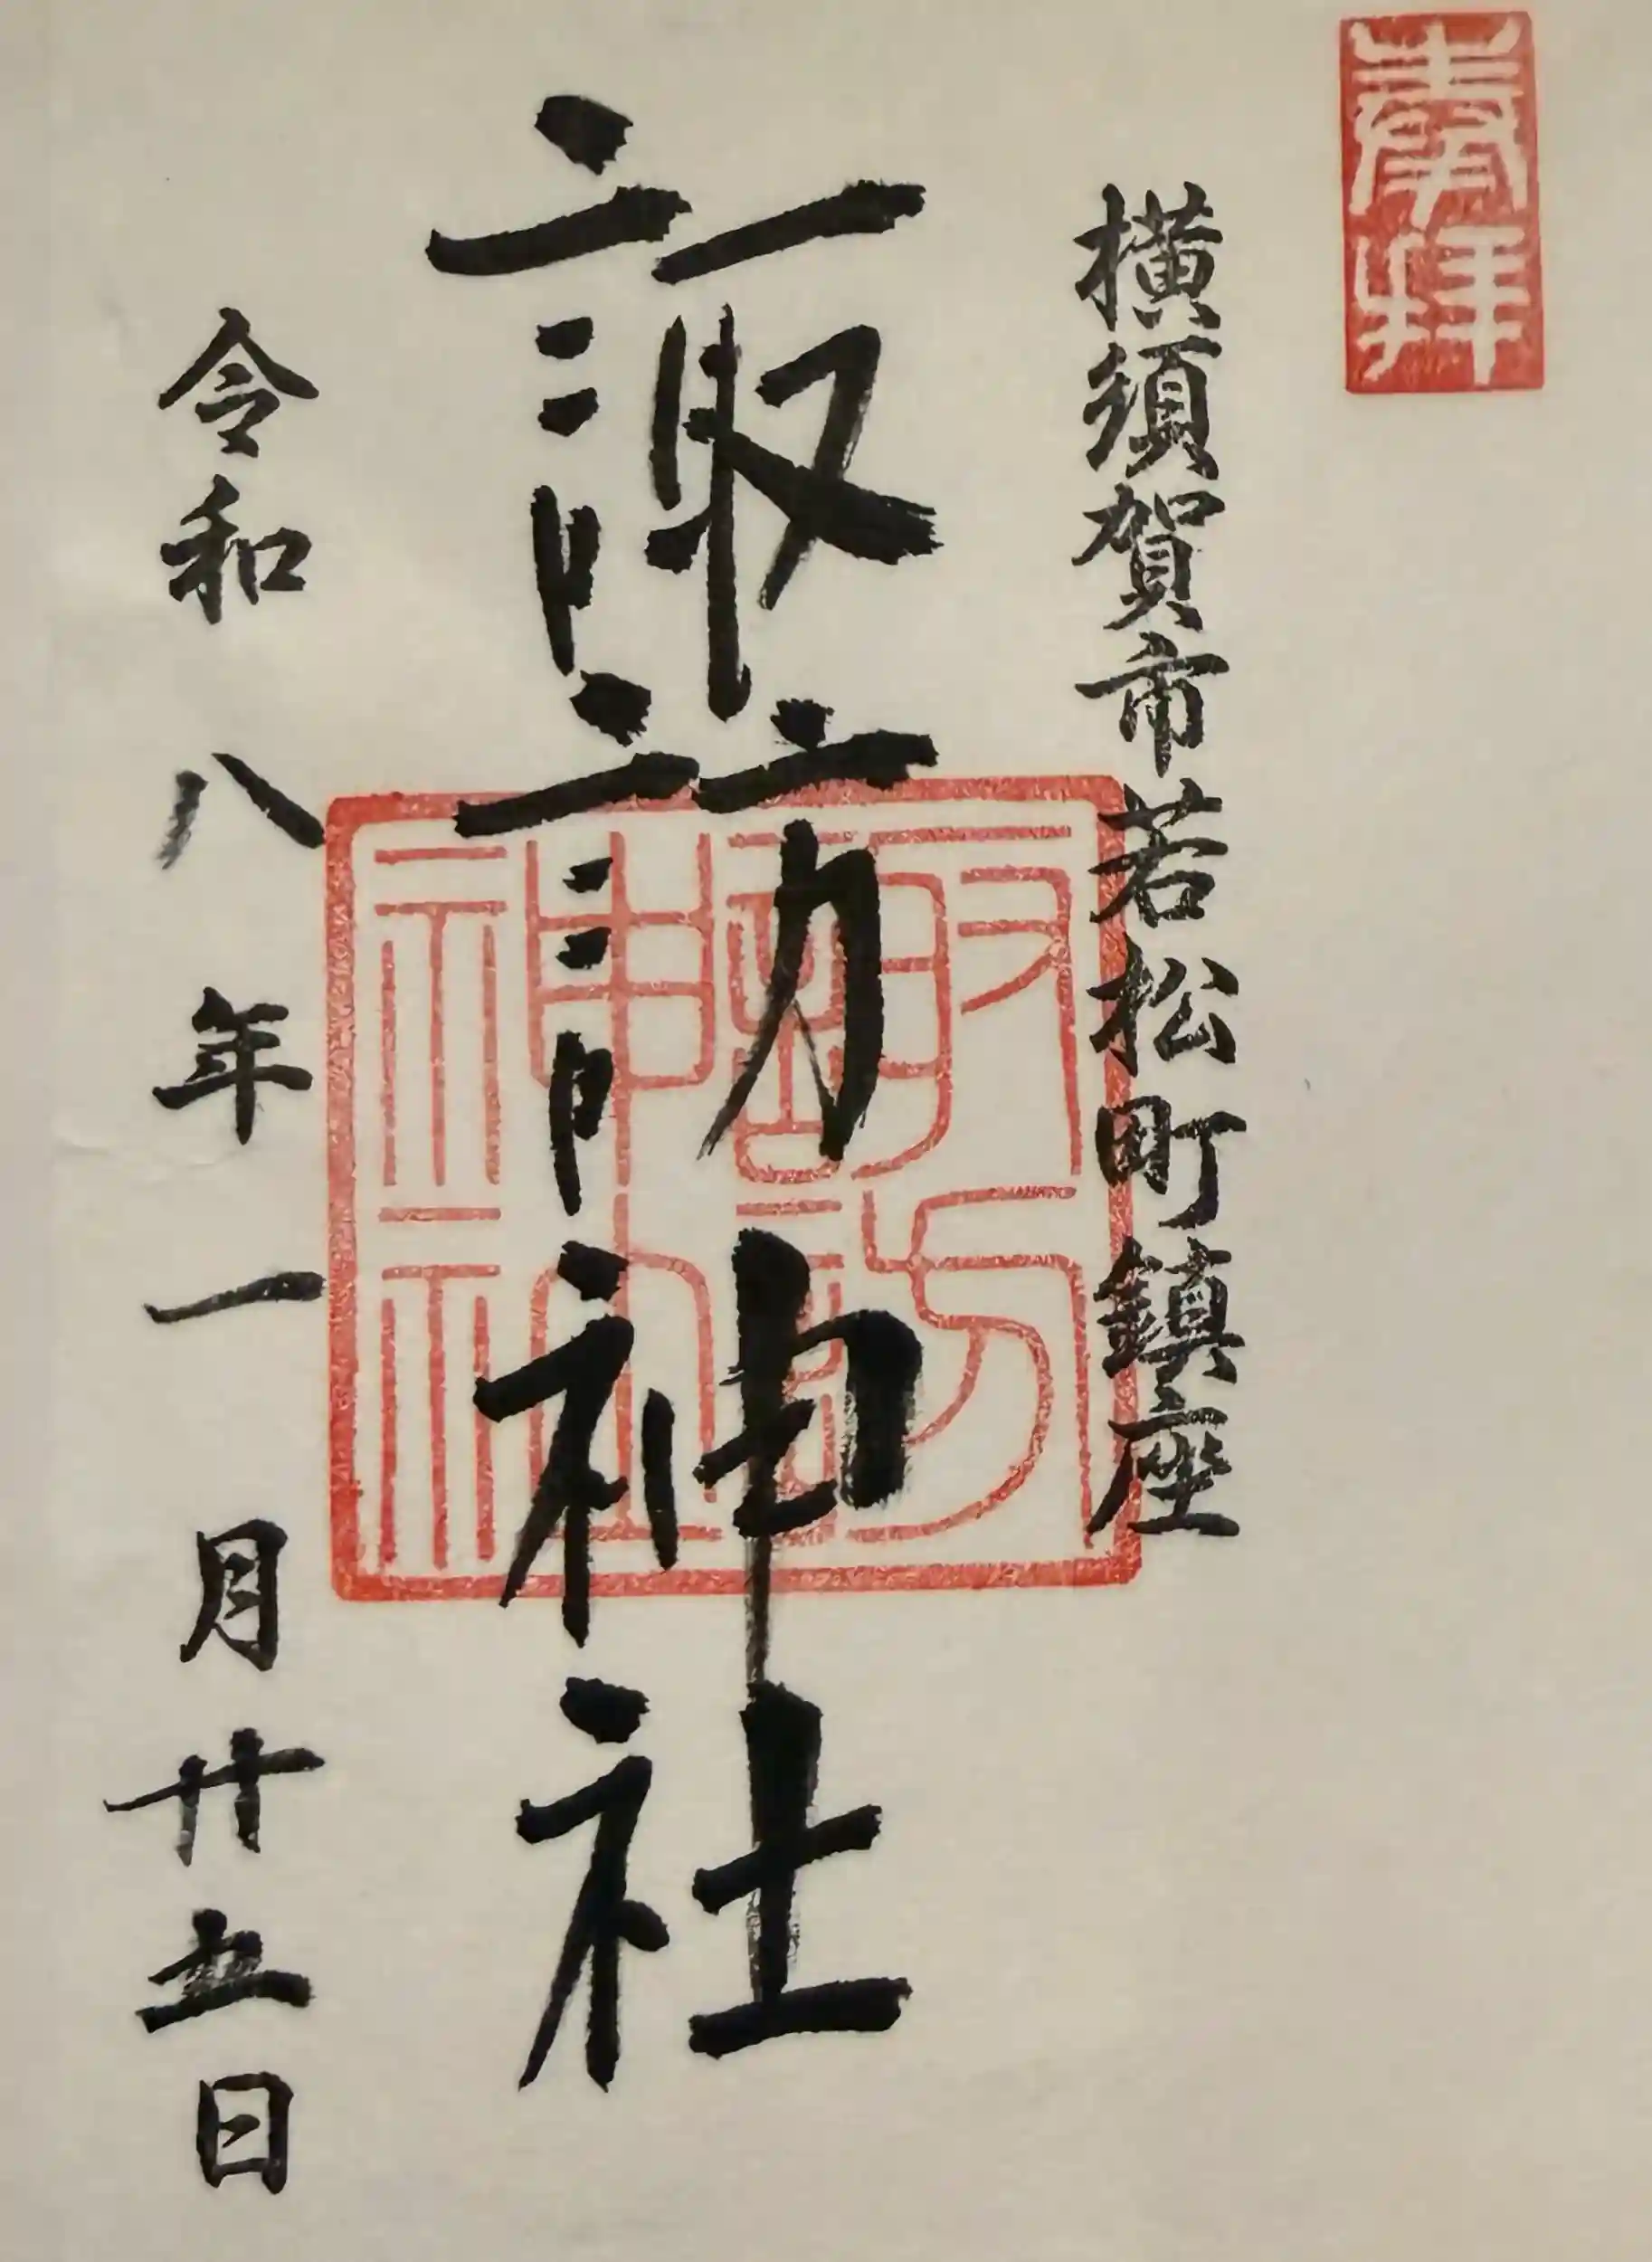 奉拝
横須賀市若松町鎮座
諏訪神社
諏訪神社
令和八年一月廿五日